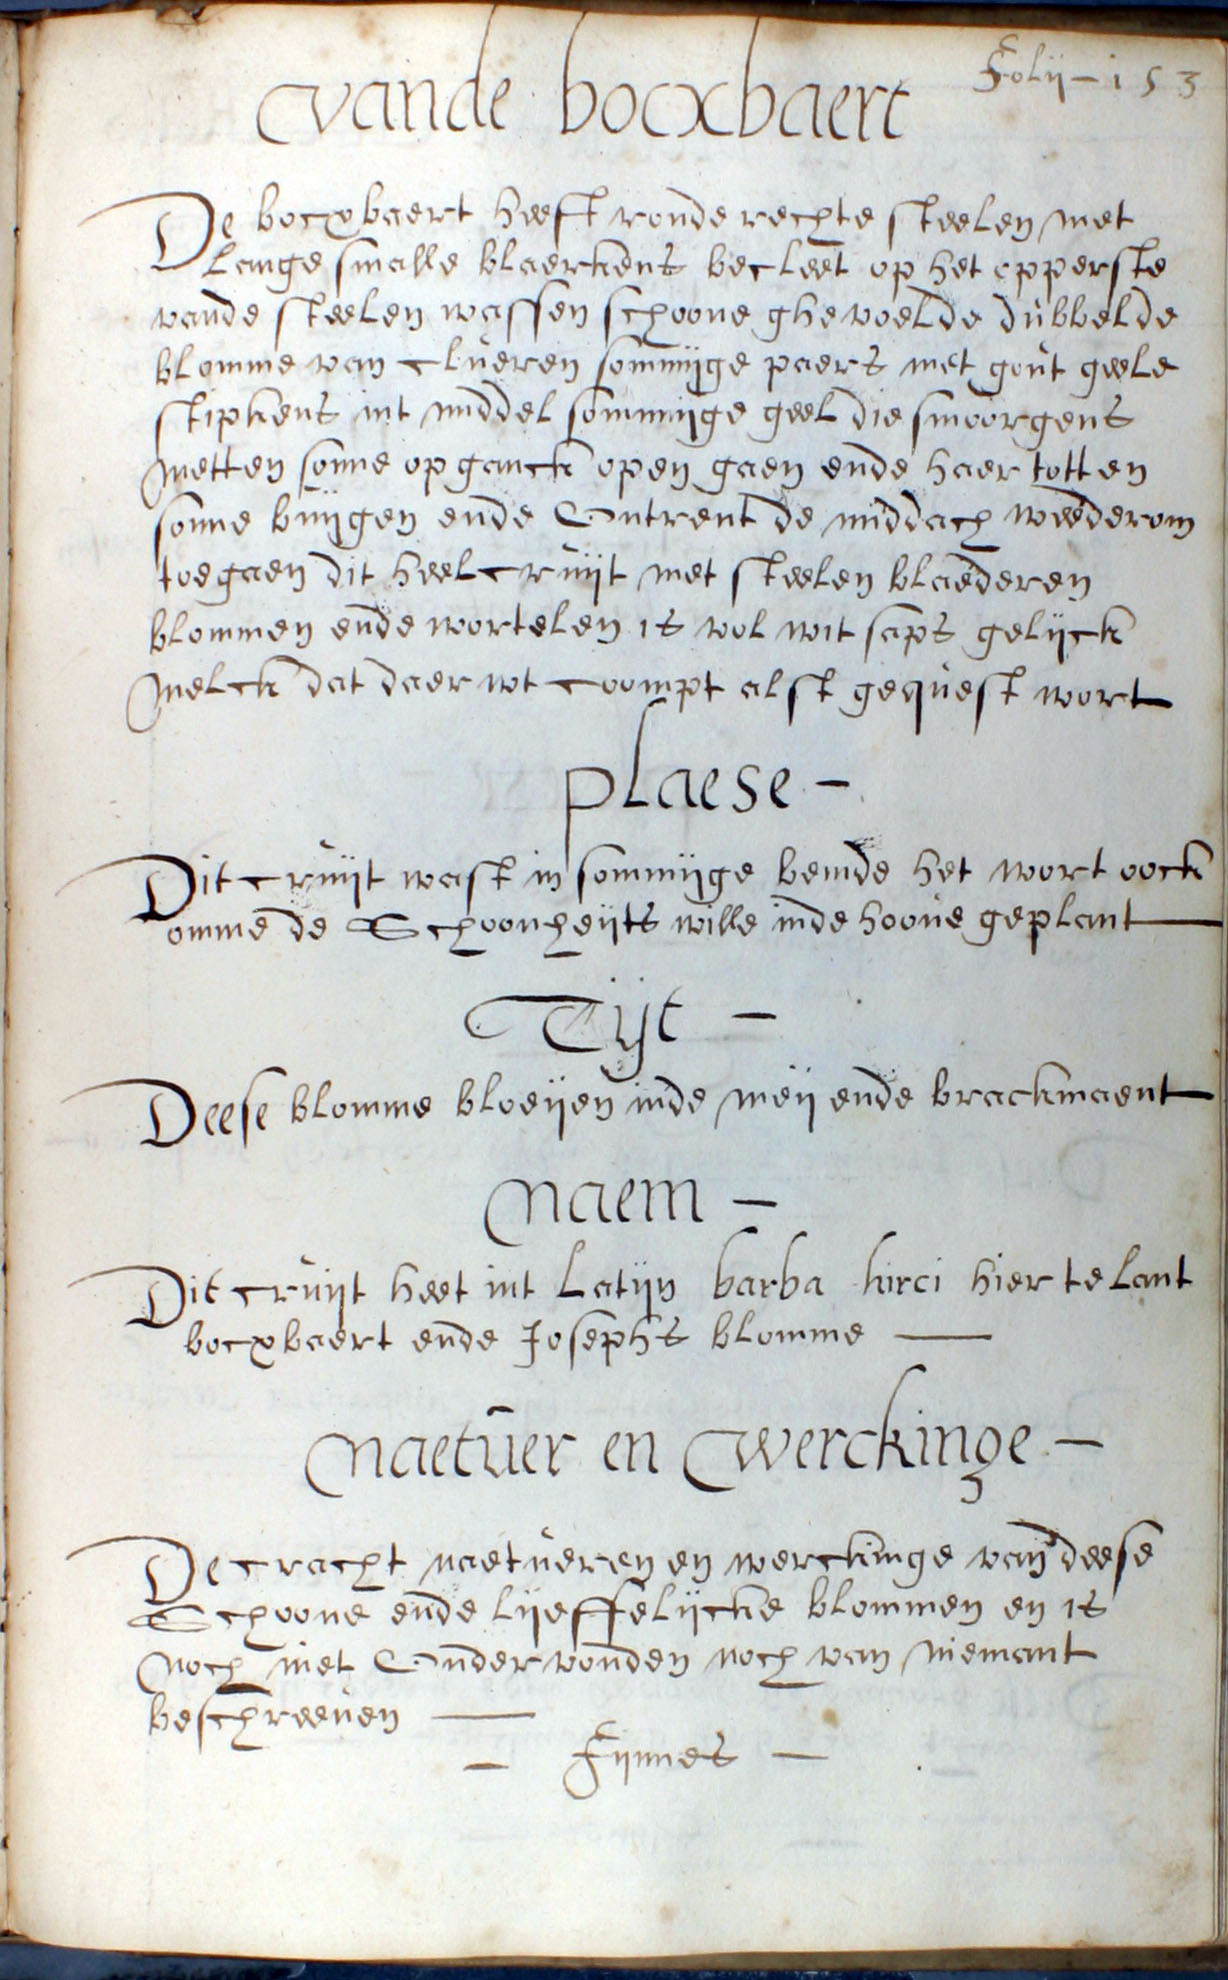 Folij - 153
vande bocxbaert
De bocxbaert heeft ronde rechte steelen met
Lange smalle blaerkens becleet op het opperste
vande steelen wassen schoone ghevoelde dubbelde
blomme van clueren sommijge paers met gout geele
stipkens int middel sommijge geel die smoorgens
metten sonne opganck open gaen ende haer totten
sonne buijgen ende Ontrent de middach weederom
toegaen dit heel cruijt met steelen blaederen
blommen ende wortelen is vol wit saps gelijck
melck dat daer wt coompt alst gequest wort
plaese -
Dit cruijt wast in sommijge bemde het wort oock
omme de Schoonheijts wille inde hoove geplant
Tijt -
Deese blomme bloeijen inde meij ende brackmaent
naem -
Dit cruijt heet int Latijn barba hirci hier te lant
bocxbaert ende Josephs blomme
naetuer en werckinge -
De cracht naetueren en werckinge van deese
Schoone ende lijeffelijcke blommen en is
noch niet Ondervonden noch van niemant
beschreeven
- Fijnnes -